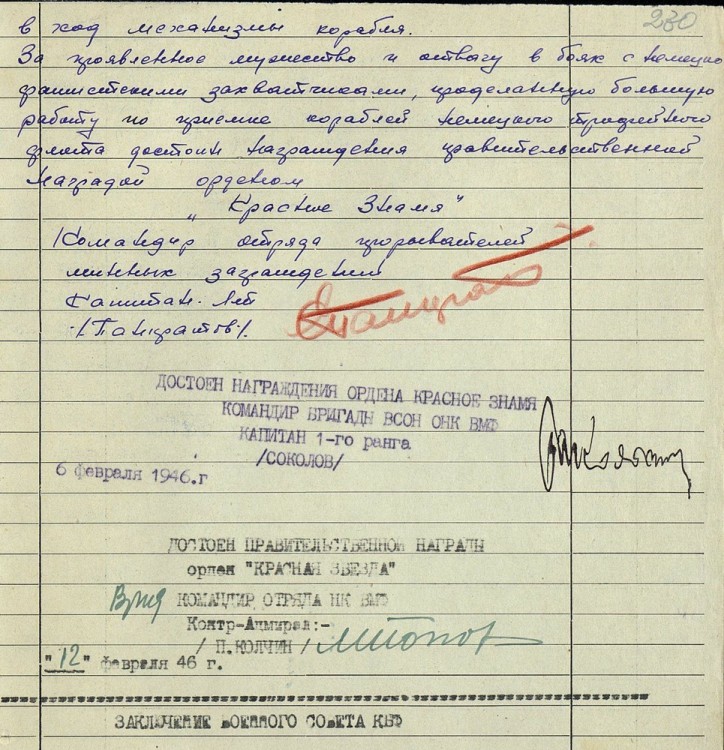 230
в ход механизмы корабля.
За проявленное мужество и отвагу в боях с немецко
фашистскими захватчиками, проделанную большую
работу по приемке кораблей немецкого трофейного
флота достоин награждения правительственной
наградой орденом
"Красное Знамя"
Командир отряда прорывателей
минных заграждений
Капитан-Лт
/Панкратов/.
ДОСТОЕН НАГРАЖДЕНИЯ ОРДЕНА КРАСНОЕ ЗНАМЯ
КОМАНДИР БРИГАДН ВСОН ОНК ВМФ
КАПИТАН 1-го ранга
/СОКОЛОВ/
6 февраля 1946.г
ДОСТОЕН ПРАВИТЕЛЬСТВЕННОЙ НАГРАДЫ
орден "КРАСНАЯ ЗВЕЗДА"
Врид КОМАНДИР ОТРЯДА НК ВМФ
Контр-Адмирал:-
/ П.КОЛЧИН /
"12" февраля 46 г.
ЗАКЛЮЧЕНИЕ ВОЕННОГО СОВЕТА КБФ